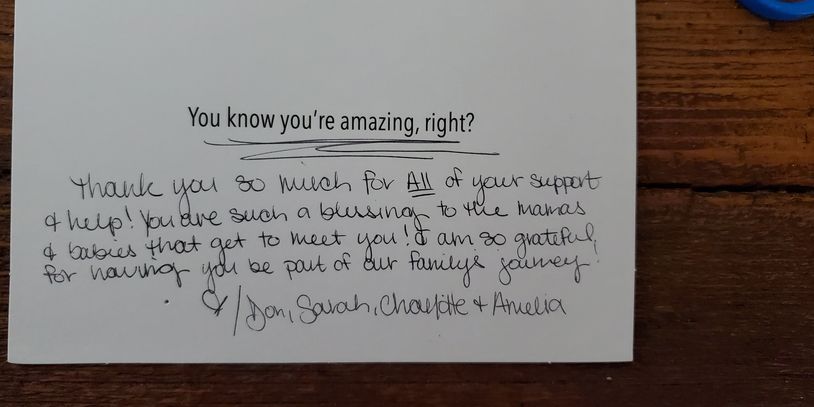 You know you're amazing, right?
Thank you so much for All of your support
& help! You are such a blessing to the mamas
& babies that get to meet you! I am so grateful
for having you be part of our familys journey!
♡/Don, Sarah, Charlotte + Amelia